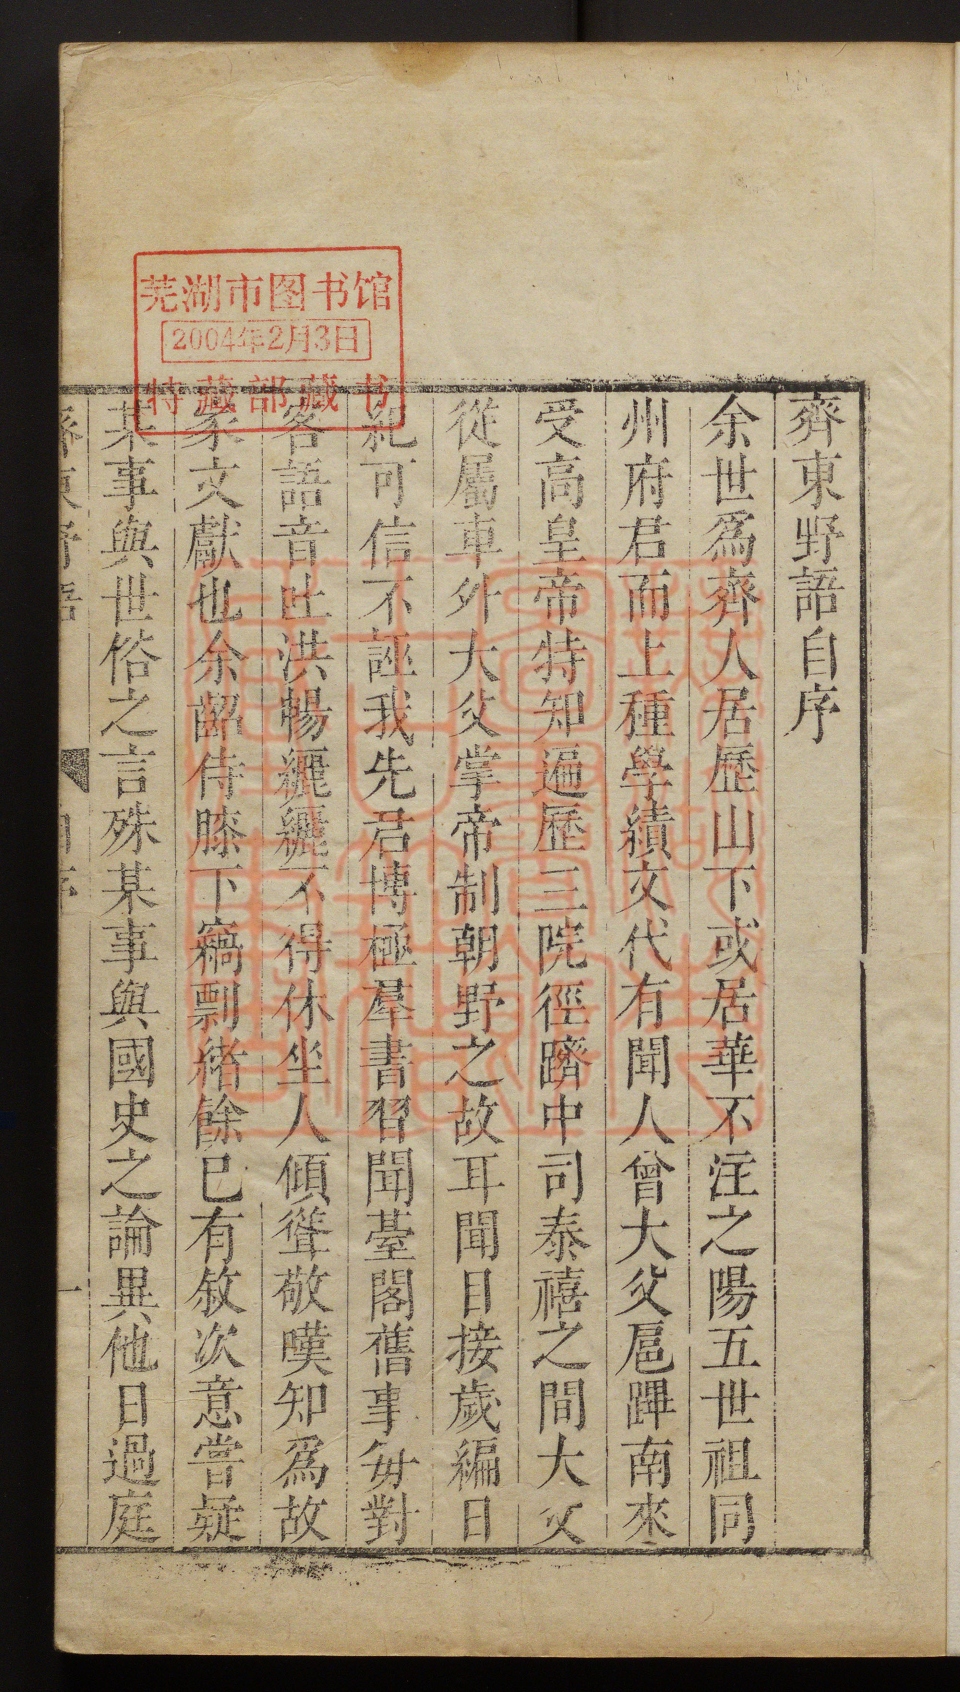 齊東野語自序
余世爲齊人居歷山下或居華不注之陽五世祖同
州府君而上種學績文代有聞人曾大父扈蹕南來
受高皇帝特知遍歷三院徑躋中司泰禧之間大父
從屬車外大父掌帝制朝野之故耳聞目接歲編日
紀可信不誣我先君博極羣書習聞臺閣舊事每對
客語音吐洪暢纚纚不得休坐人傾聳敬嘆知爲故
家文獻也余齠侍膝下竊剽緒餘已有敘次意嘗疑
某事與世俗之言殊某事與國史之論異他日過庭
齊東野語
自序
一
芜湖市图书馆
2004年2月3日
特藏部藏书